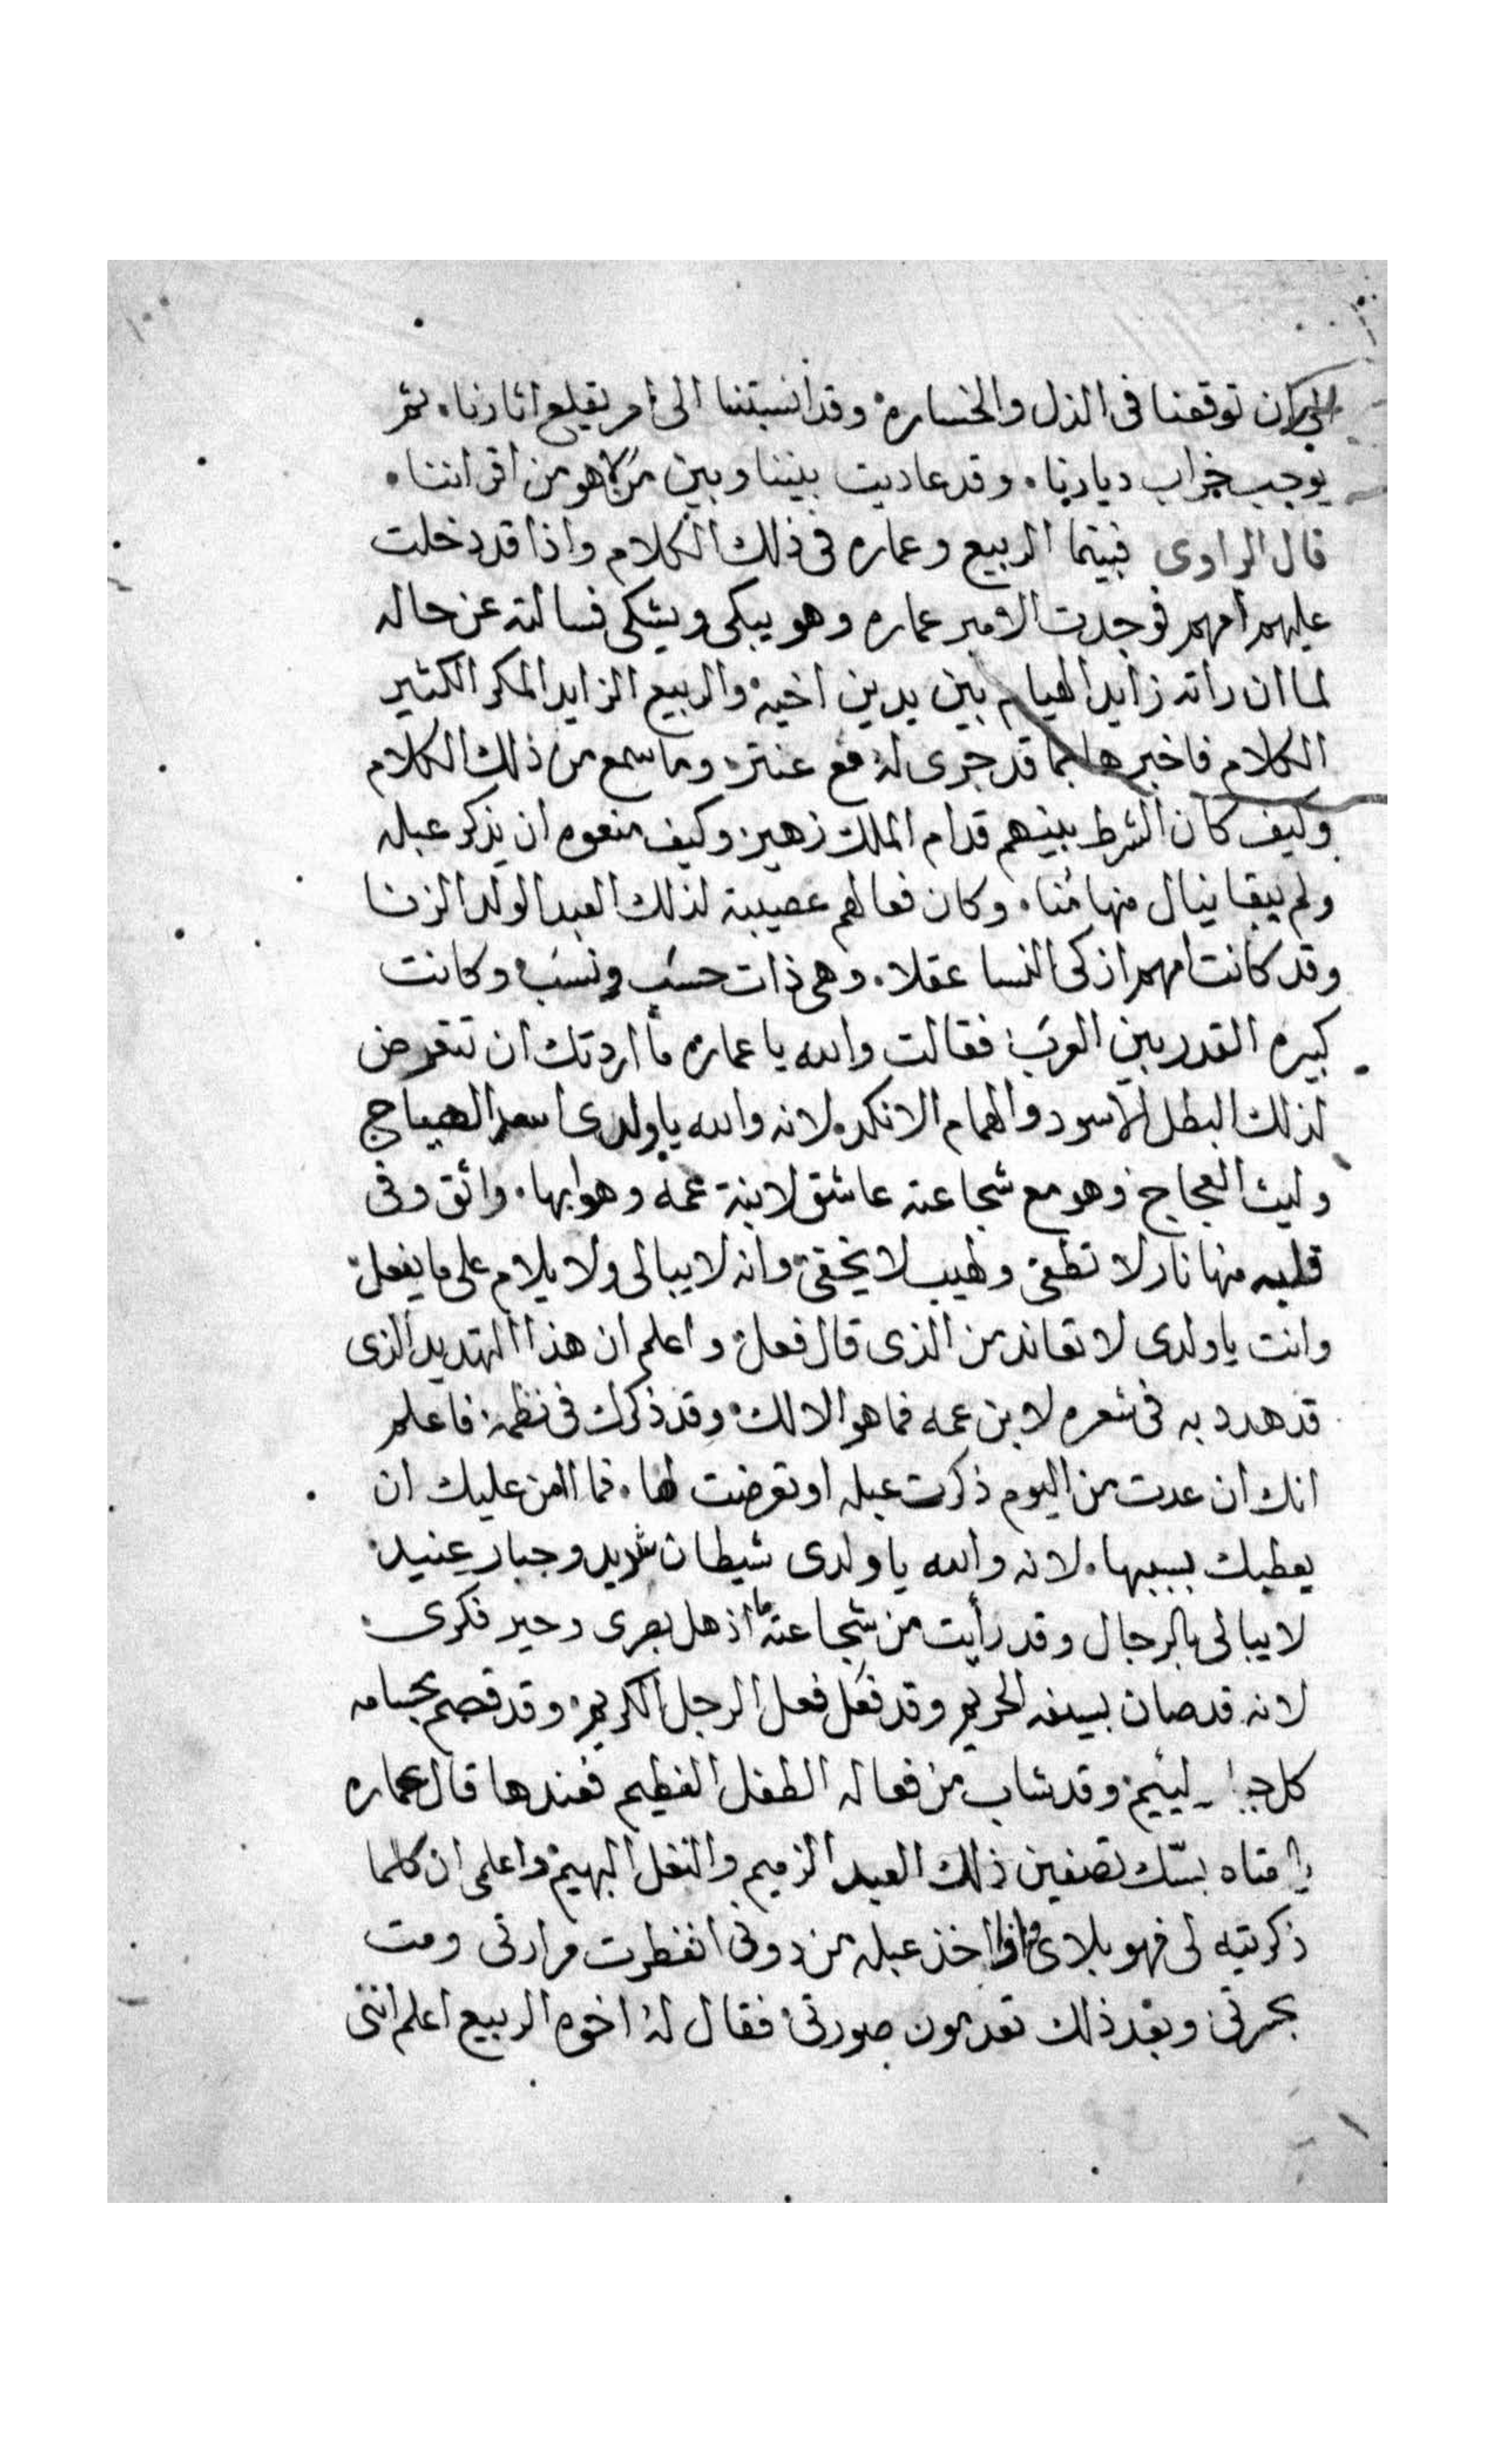 الى ان توقعنا فى الذل والخساره وقد انسبتنا الى امر يقلع اثارنا. ثم
يوجب خراب ديارنا. وقد عاديت بيننا وبين من لا هو من اقراننا.
قال الراوى فبينما الربيع وعماره فى ذلك الكلام واذا قد دخلت
عليهم امهم فوجدت الامير عماره وهو يبكى ويشكى فسالته عن حاله
لما ان راته زايد الهيام بين يدين اخيه والربيع الزايد المكر الكثير
الكلام فاخبرها بما قد جرى له مع عنتر وما سمع من ذلك الكلام
وكيف كان الشرط بينهم قدام الملك زهير وكيف منعوه ان يذكر عبله
ولم يبقا ينال منها مُنا. وكان فعالهم عصيبة لذلك العبد الولد الزنا
وقد كانت امهم ازكى النسا عقلا. وهى ذات حسَب ونسَب وكانت
كبيره القدر بين العرَب فقالت والله يا عماره ما اردتك ان تتعرض
لذلك البطل الاسود والهمام الانكد لانه والله يا ولدى اسد الهياج
وليث العجاج وهو مع شجاعته عاشق لابنة عمه وهو ابها. واثق وفى
قلبه منها نار لا تطفى ولهيب لا يخفى وانه لا يبالى ولا يلام على ما يفعل
وانت يا ولدى لا تعاند من الذى قال فعل واعلم ان هذا التهديد الذى
قد هدد به فى شعره لابن عمه فما هو الا لك وقد ذكرك فى نظمه فاعلم
انك ان عدت من اليوم ذكرت عبله او تعرضت لها. فما اامن عليك ان
يعطبك بسببها. لانه والله يا ولدى شيطان شديد وجبار عنيد
لا يبالى بالرجال وقد رأيت من شجاعته ما اذهل بصرى وحير فكرى
لانه قد صان بسيفه الحريم وقد فعَل فعل الرجل الكريم وقد قصم بحسامه
كل جبار ليئيم وقد شاب من فعاله الطفل الفطيم فعندها قال عماره
يا امتاه بسّك تصفين ذلك العبد الزميم والنغل البهيم واعلمى ان كلما
ذكرتيه لى فهو بلاى واذا اخذ عبله من دونى انفطرت مرارتى ومت
بحسرتى وبعد ذلك تعدمون صورتى فقال له اخوه الربيع اعلم اننى